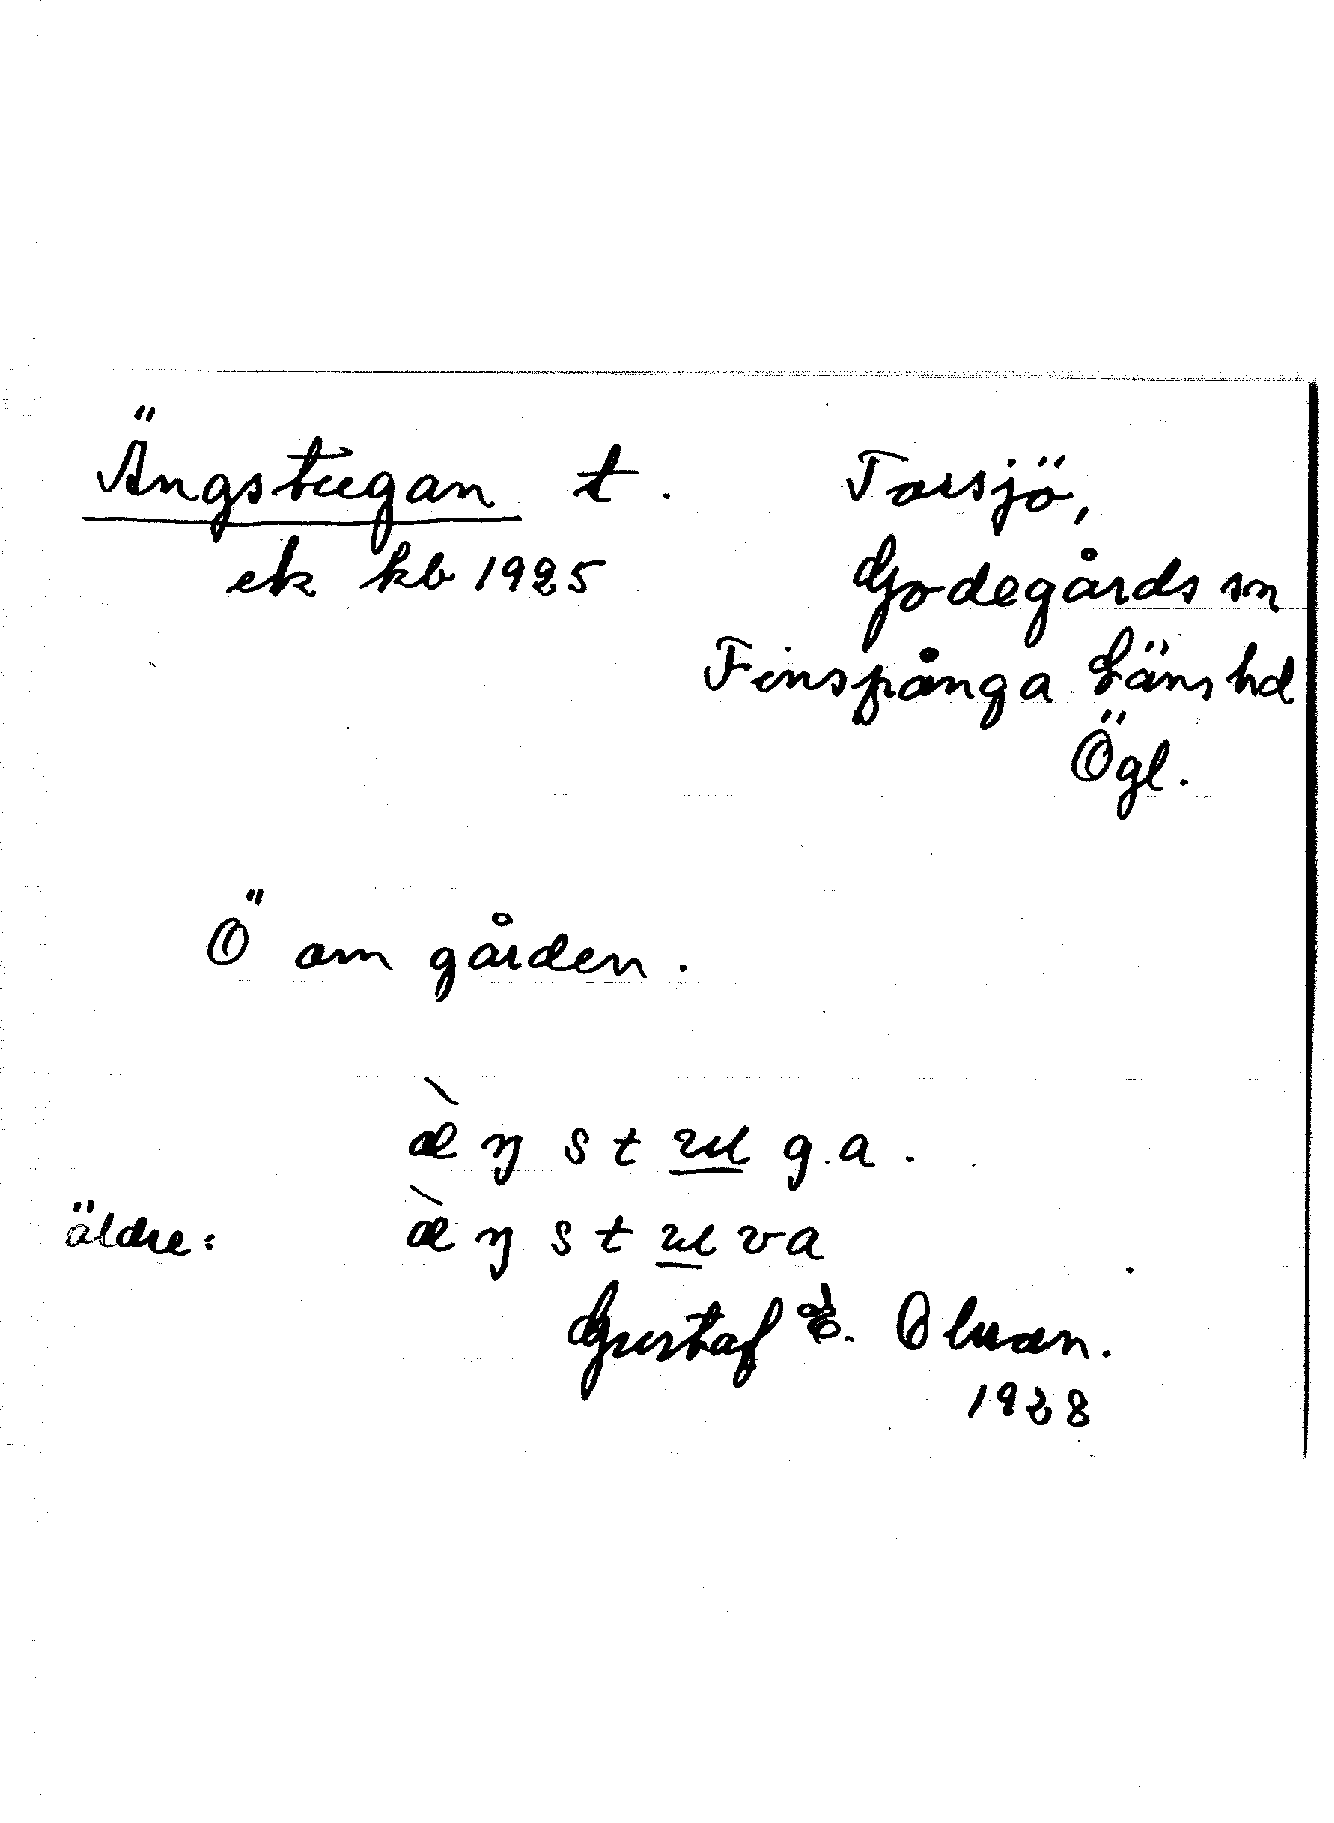 Ängstugan t. Torsjö,
ek kb 1925 Godegårds sn
Finspånga Läns hd
Ögl.
Ö om gården.
æ̀ ŋ s t u g a.
äldre: æ̀ ŋ s t u v a
Gustaf E. Olsson.
1928